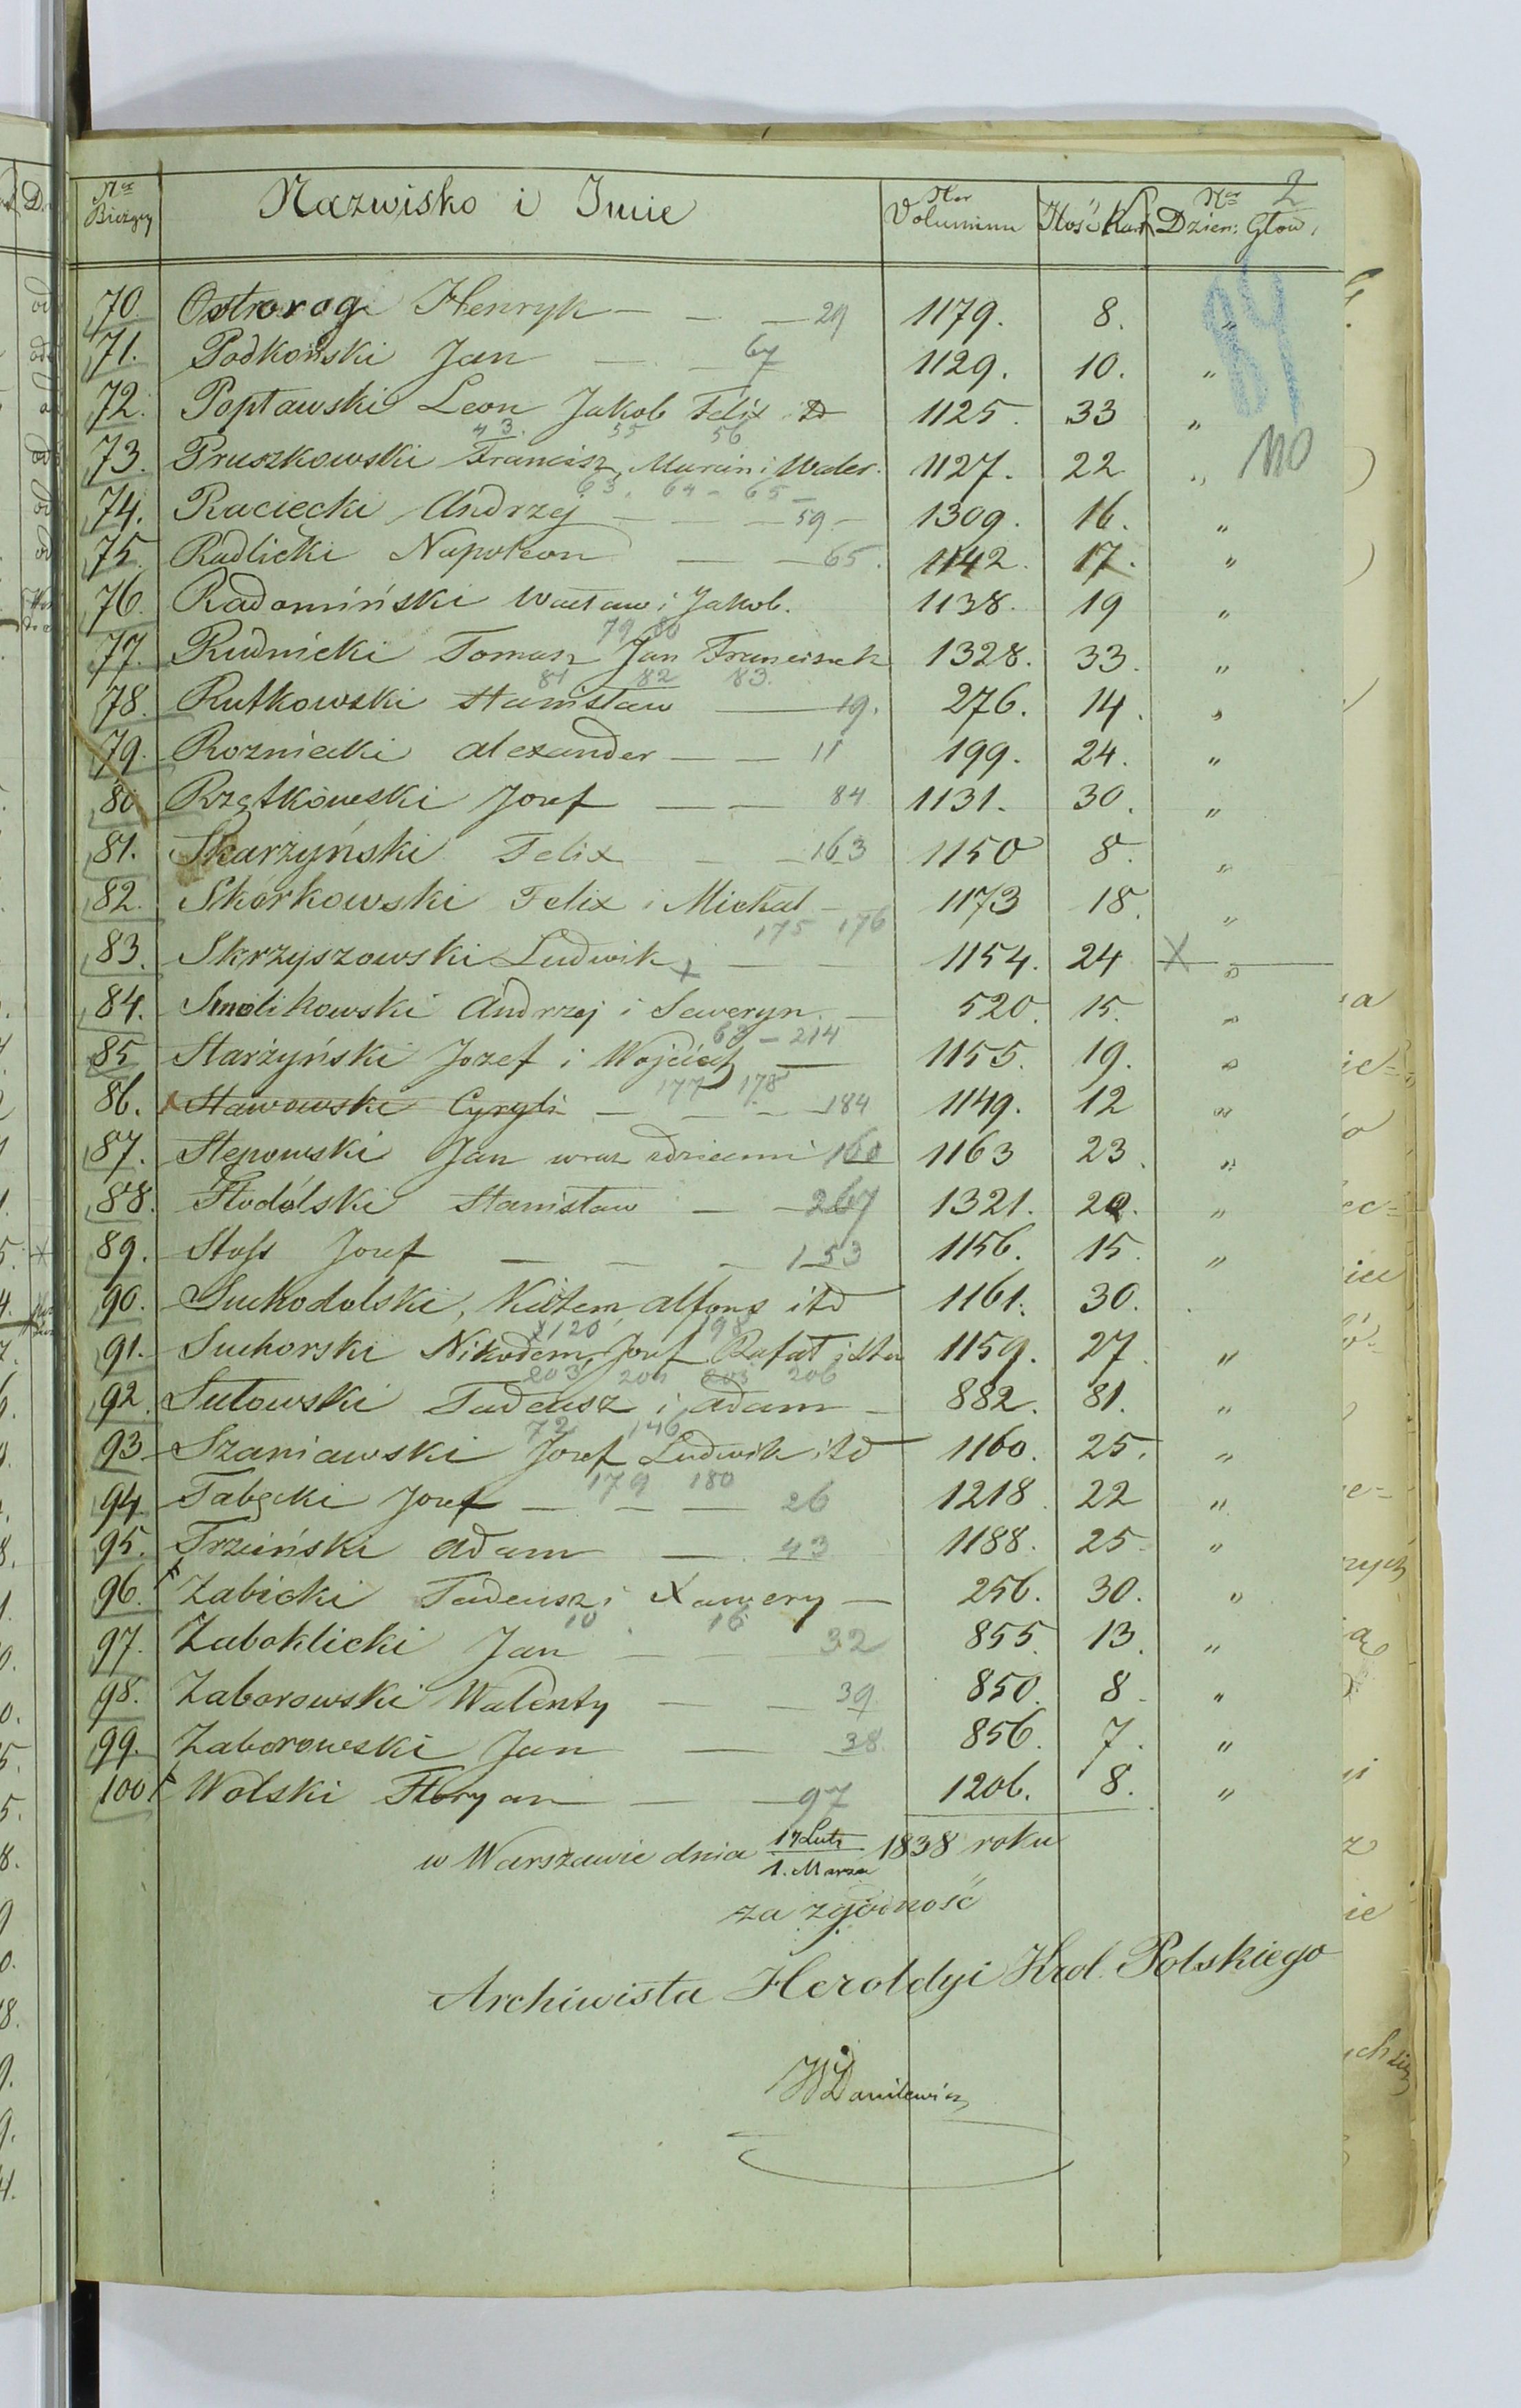 2
Ner Bieżący Nazwisko i Imie Ner Voluminu Ilość Kart Ner Dzien: Głow.
84
110
70. Ostrorog Henryk — — — 29 1179. 8. "
71. Podkoński Jan — — 67 1129. 10. "
72. Popławski Leon Jakob Felix 1125. 33 "
43. 55 56
73. Pruszkowski Francisz, Marcin i Waler. 1127. 22 "
63. 64 - 65 -
74. Raciecki Andrzej — — — 59 — 1309. 16. "
75. Radlicki Napoleon — — 65. 1142. 17. "
76. Radomiński Wacław i Jakob. 1138. 19 "
79 80
77. Rudnicki Tomasz Jan Franciszek 1328. 33. "
81 82 83.
78. Rutkowski Stanisław — 19. 276. 14. "
79. Rozniecki Alexander — — 11 199. 24. "
80 Rzątkowski Jozef — — 84 1131. 30. "
81. Skarżyński Felix — — 163 1150 8. "
82. Skórkowski Felix i Michał — 1173 18. "
175 176
83. Skrzyszowski Ludwik x — — 1154. 24 X "
84. Smolikowski Andrzej i Seweryn. — 520. 15. "
69 — 214
85 Starżyński Jozef i Wojciech — 1155. 19. "
177 178
86. x Stawowski Cyryli — — — 184 1149. 12 "
87. Stępowski Jan wraz zdziećmi 160 1163 23. "
88. Stodólski Stanisław — — 267 1321. 20. "
89. Stoss Jozef — — — 153 1156. 15. "
90. Suchodolski, Kajetan, Alfons itd 1161. 30.
x 120 198
91. Suchorski Nikodem, Jozef Rafał itd 1159. 27 "
203 204 205 206
92. Sutowski Tadeusz i Adam — 882. 81. "
72 146
93 Szaniawski Jozef Ludwik itd 1160. 25. "
179 180
94. Tabęcki Jozef — — — 26 1218. 22 "
95. Trzciński Adam — 43 1188. 25. "
96. x Zabicki Tadeusz i Xawery — 256. 30. "
10 16
97. Zaboklicki Jan — — — 32 855. 13. "
98. Zaborowski Walenty — — 39 850. 8. "
99. Zaborowski Jan — 38. 856. 7. "
100 x Wolski Floryan — — 97 1206. 8. "
w Warszawie dnia 17 Lut: / 1. Marca 1838 roku
za zgodność
Archiwista Heroldyi Krol. Polskiego
W Danilewicz